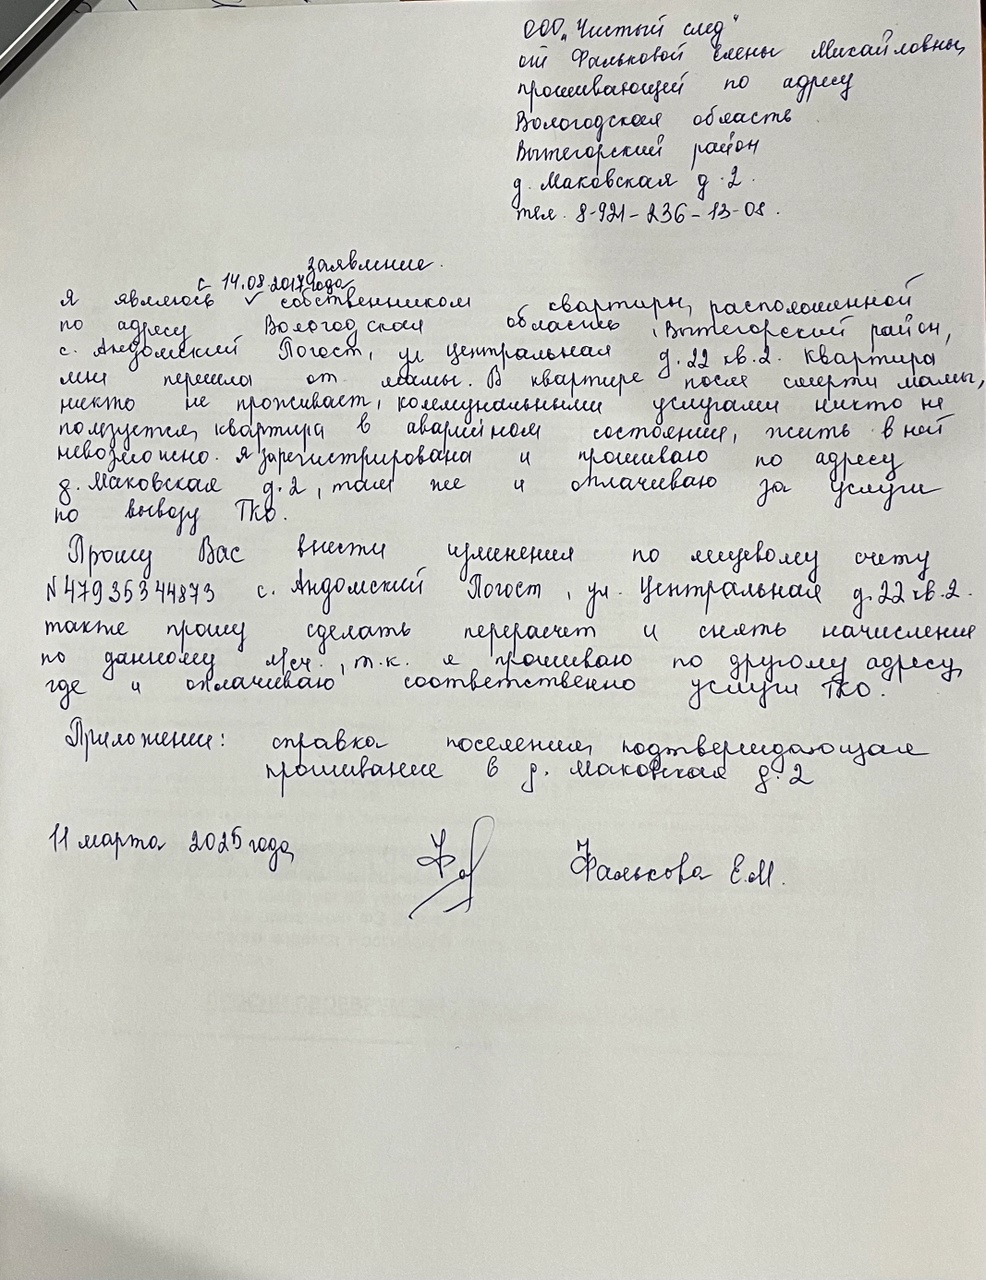 ООО "Чистый след"
от Фальковой Елены Михайловны,
проживающей по адресу
Вологодская область
Вытегорский район
д. Маковская д. 2.
тел. 8-921-236-13-08.
заявление.
с 14.08.2017 года
Я являюсь ✓ собственником квартиры, расположенной
по адресу Вологодская область, Вытегорский район,
с. Андомский Погост, ул Центральная д. 22 кв. 2. Квартира
мне перешла от мамы. В квартире после смерти мамы,
никто не проживает, коммунальными услугами никто не
пользуется, квартира в аварийном состоянии, жить в ней
невозможно. Я зарегистрирована и проживаю по адресу
д. Маковская д. 2, там же и оплачиваю за услуги
по вывозу ТКО.
Прошу Вас внести изменения по лицевому счету
N 47935344873 с. Андомский Погост, ул. Центральная д. 22 кв. 2.
также прошу сделать перерасчет и снять начисления
по данному л/сч., т.к. я проживаю по другому адресу,
где и оплачиваю соответственно услуги ТКО.
Приложение: справка поселения, подтверждающая
проживание в д. Маковская д. 2
11 марта 2025 года
Фалькова Е.М.